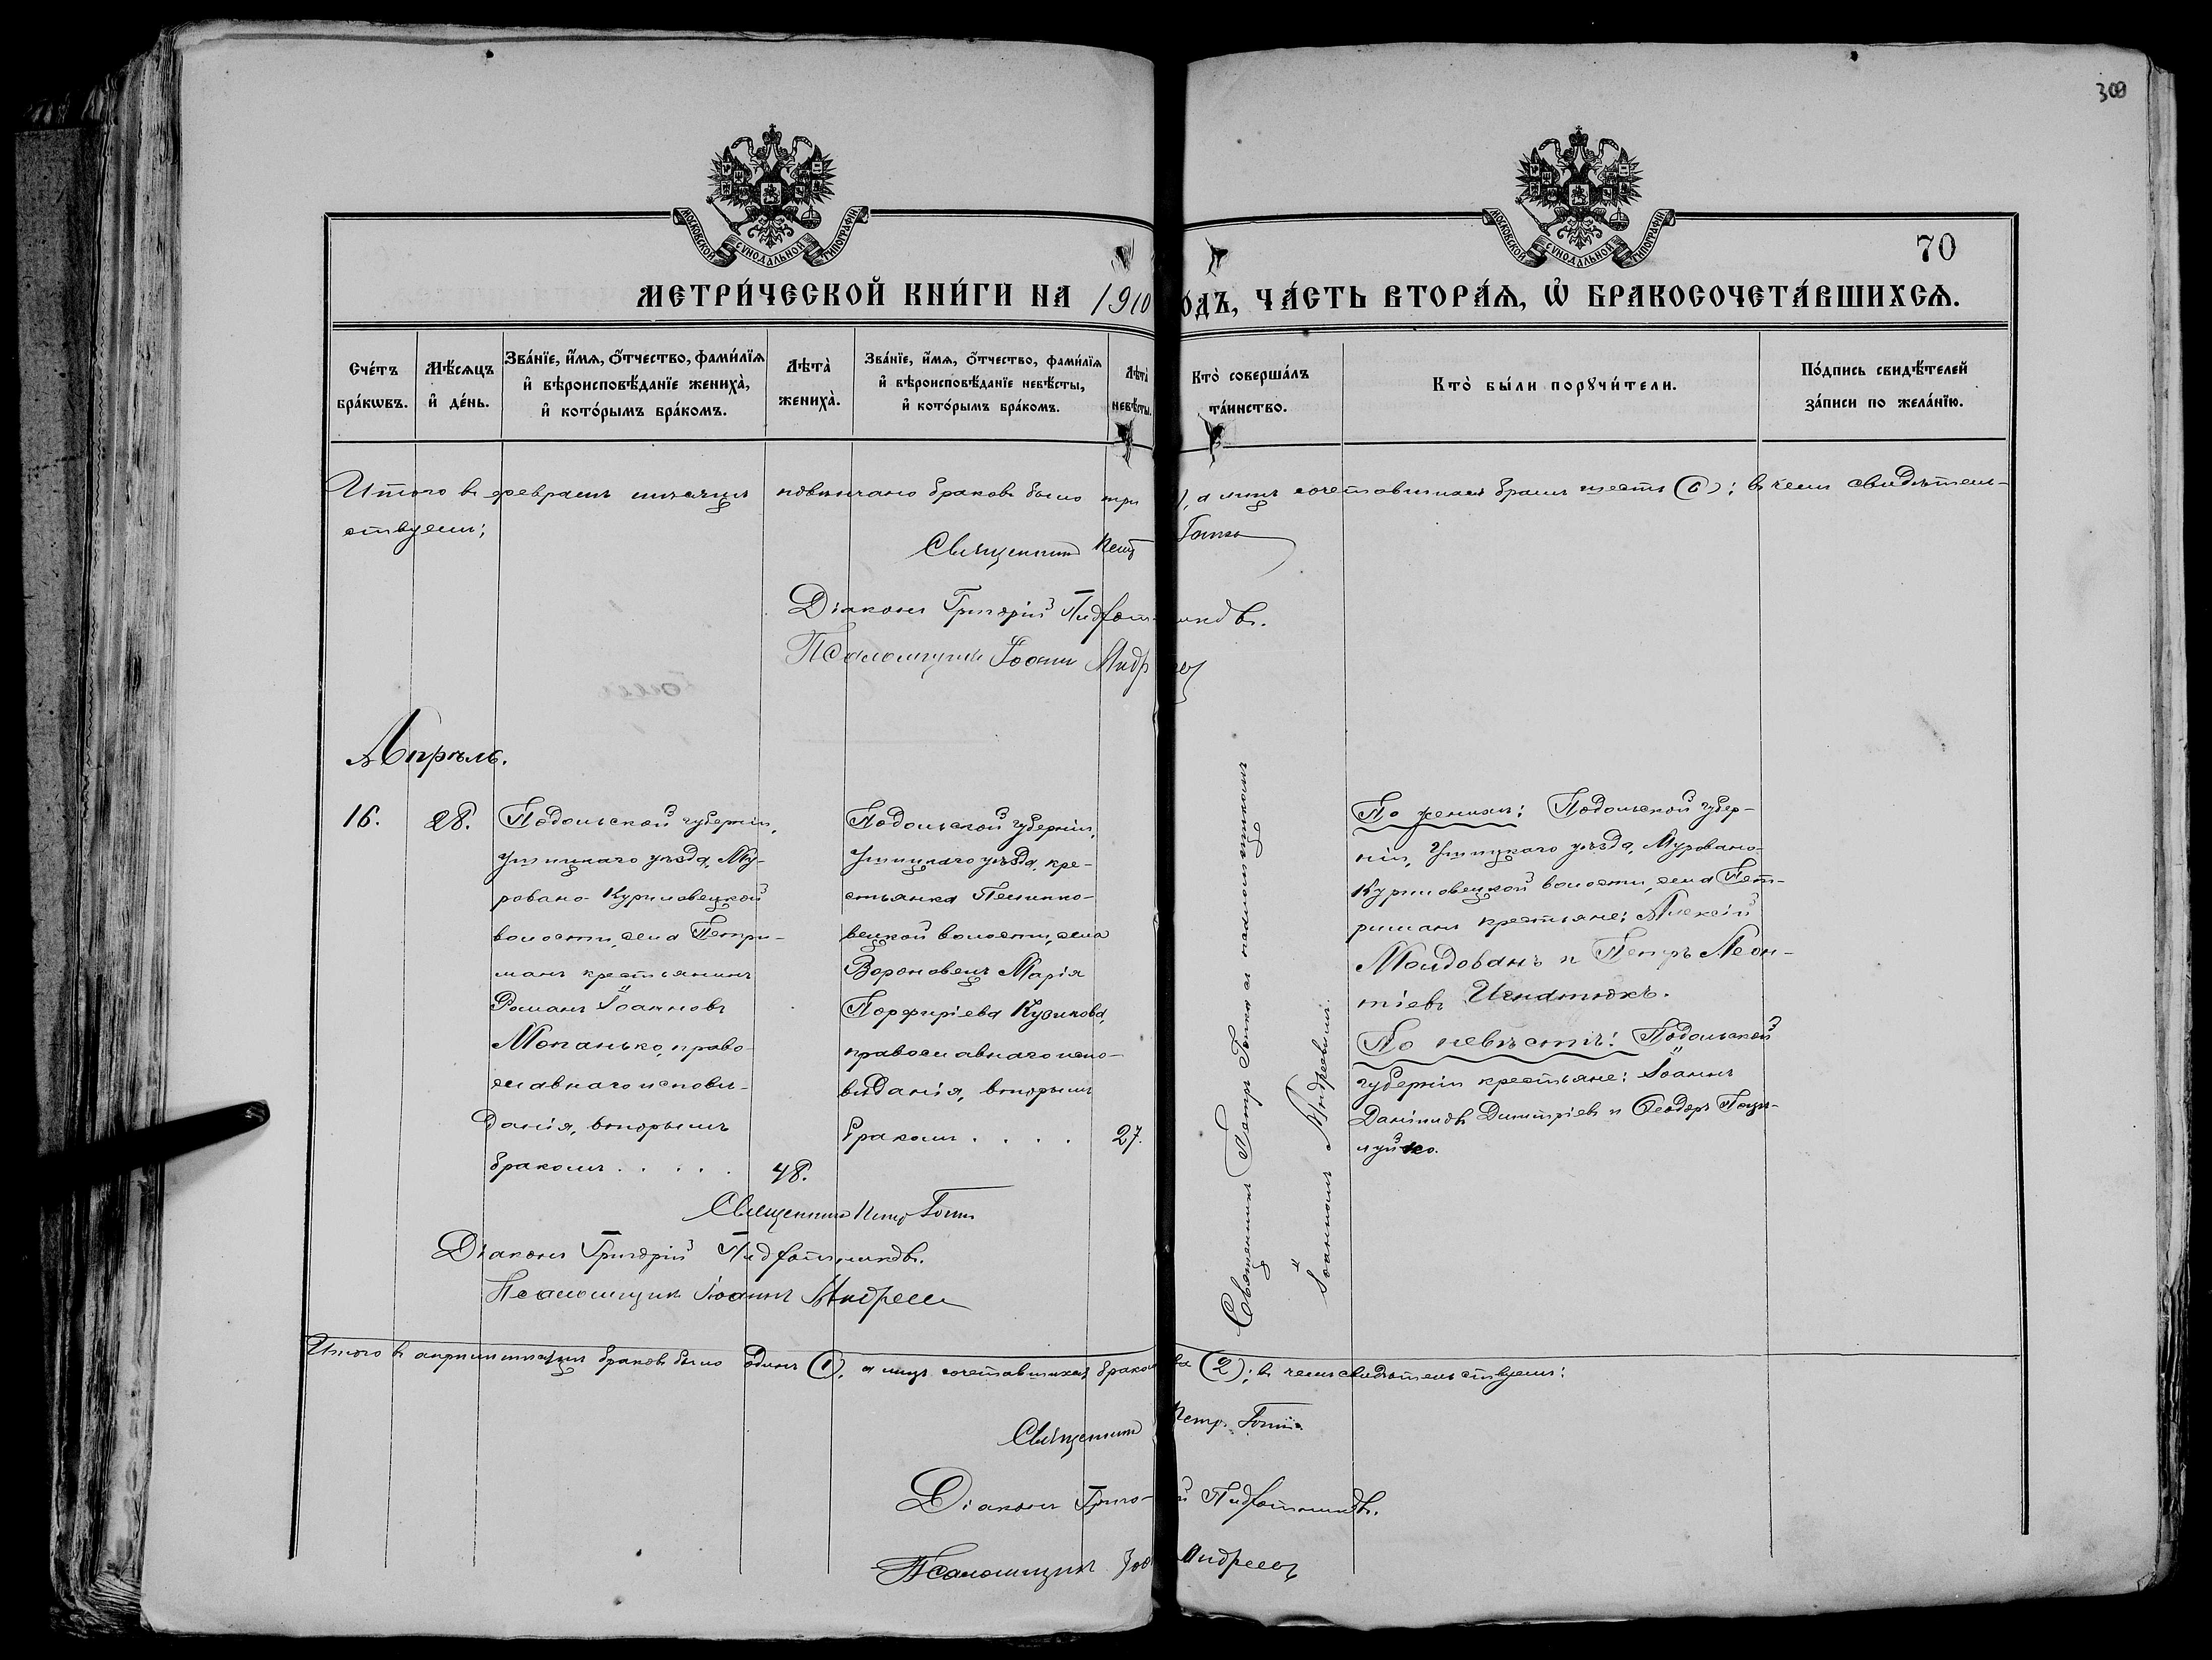 309
МОСКОВСКОЙ СѴНОДАЛЬНОЙ ТИПОГРАФІИ
МОСКОВСКОЙ СѴНОДАЛЬНОЙ ТИПОГРАФІИ
70
МЕТРИ́ЧЕСКОЙ КНИ́ГИ НА 1910
ОДЪ, ЧА́СТЬ ВТОРА́Ѧ, Ѡ҆ БРАКОСОЧЕТА́ВШИХСѦ.
Сче́тъ бра́кѡвъ.
Мѣ́сѧцъ и҆ де́нь.
Зва́нїе, и҆́мѧ, ѻ҆́тчество, фами́лїѧ
и҆ вѣроисповѣ́данїе жениха̀,
и҆ кото́рымъ бра́комъ.
Лѣта̀ жениха̀.
Зва́нїе, и҆́мѧ, ѻ҆́тчество, фами́лїѧ
и҆ вѣроисповѣ́данїе невѣ́сты,
и҆ кото́рымъ бра́комъ.
Лѣта̀ невѣ́сты.
Кто̀ соверша́лъ
та́инство.
Кто̀ бы́ли порꙋчи́тели.
По́дпись свидѣ́телей
за́писи по жела́нїю.
Итого въ февралѣ мѣсяцѣ повѣнчано браковъ было три ), а лицъ сочетавшихся бракомъ шесть (6); въ чемъ свидѣтель-
ствуемъ;
Священникъ Петръ
Діаконъ Григорій
Псаломщикъ Іоаннъ Андр
Апрѣль.
16.
28.
Подольской губерніи,
Ушицкаго уѣзда, Му-
ровано-Куриловецкой
волости, села Петри-
манъ крестьянинъ
Романъ Іоанновъ
Мопанько, право-
славнаго исповѣ-
данія, вторымъ
бракомъ . . . . .
48.
Подольской губерніи,
Ушицкаго уѣзда, кре-
стьянка
вецкой волости, села
Вороновецъ Марія
Порфиріева Кузикова,
православнаго испо-
вѣданія, вторымъ
бракомъ . . . .
27.
Священникъ Петръ съ псаломщикомъ
Іоанномъ Андреевымъ.
По женихѣ: Подольской губер-
ніи, Ушицкаго уѣзда, Муровано-
Куриловецкой волости, села Пет-
риманъ крестьяне: Алексій
Молдованъ и Петръ Леон-
тіевъ Игнатюкъ.
По невѣстѣ: Подольской
губерніи крестьяне: Іоаннъ
Даніиловъ Димитріевъ и Ѳеодоръ
Священникъ Петръ
Діаконъ Григорій
Псаломщикъ Іоаннъ Андреевъ
Итого въ апрѣлѣ мѣсяцѣ браковъ было одинъ (1), а лицъ сочетавшихся брако ва (2); въ чемъ свидѣтельствуемъ:
Священникъ Петръ
Діаконъ Григо- й
Псаломщикъ Іоа Андреевъ